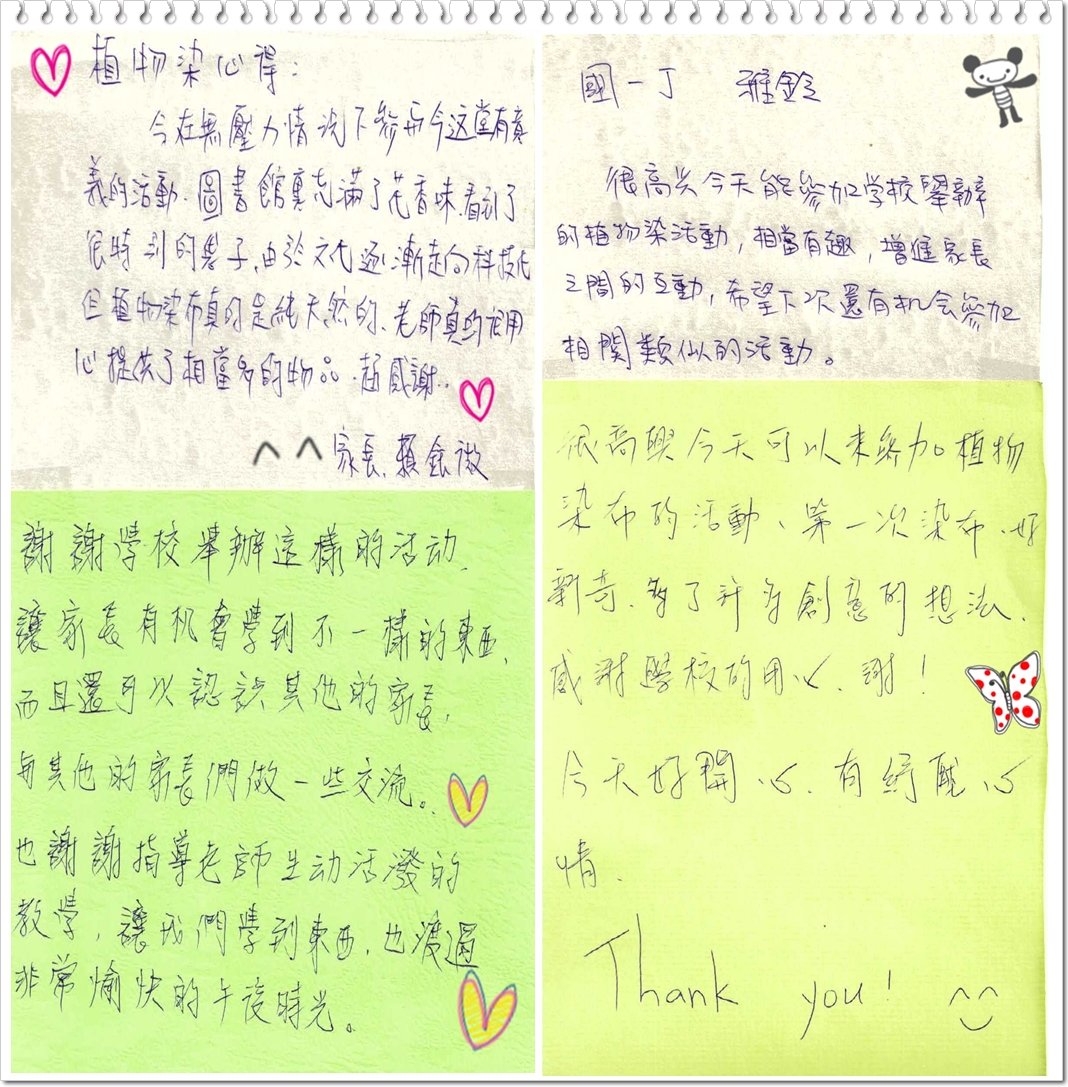 植物染心得:
今在無壓力情況下參與今这堂有意
義的活動.圖書館裏充滿了花香味.看到了
很特別的葉子.由於文化逐漸走向科技化
但植物染布真的是純天然的.老師真的很用
心提供了相當多的物品.超感謝..
^ ^ 家長.賴金微
謝謝學校舉辦這樣的活动.
讓家長有机會學到不一樣的東西,
而且還可以認識其他的家長,
與其他的家長們做一些交流。
也謝謝指導老師生动活潑的
教學,讓我們學到東西.也渡過
非常愉快的午後時光。
國一丁 雅鈴
很高兴今天能參加学校舉辦
的植物染活動,相當有趣,增進家長
之間的互動,希望下次還有机会參加
相關類似的活動。
很高興今天可以來參加植物
染布的活動、第一次染布.好
新奇.多了許多創意的想法.
感謝學校的用心.謝!
今天好開心.有紓壓心
情.
Thank you! ^^